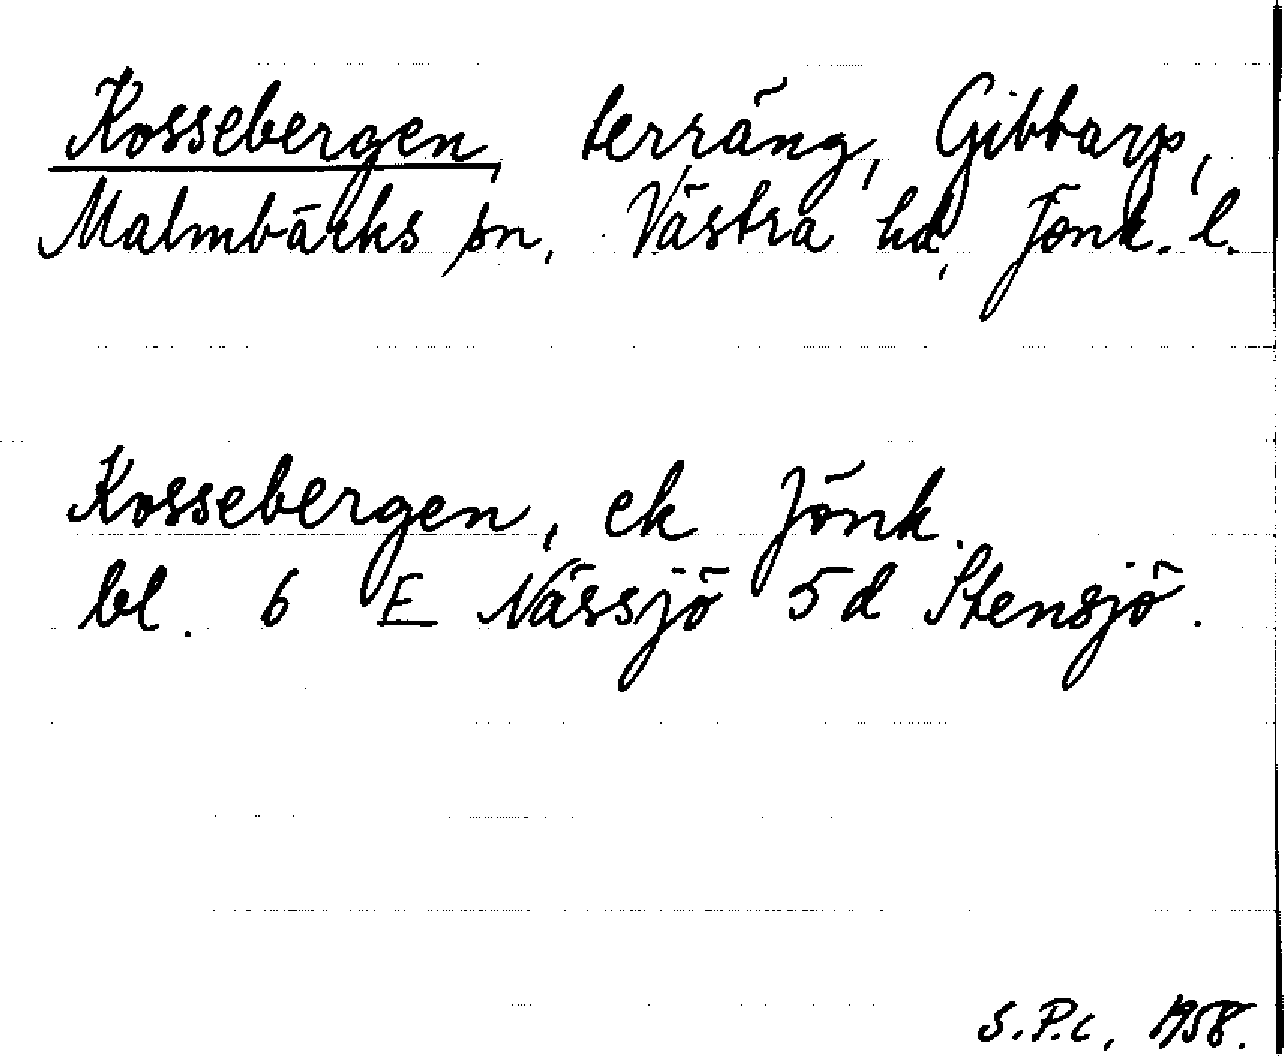 Kossebergen, terräng, Gibbarp,
Malmbäcks sn, Västra hd, Jönk. l.
Kossebergen, ek Jönk.
bl. 6 E Nässjö 5d Stensjö.
S.P.c, 1958.